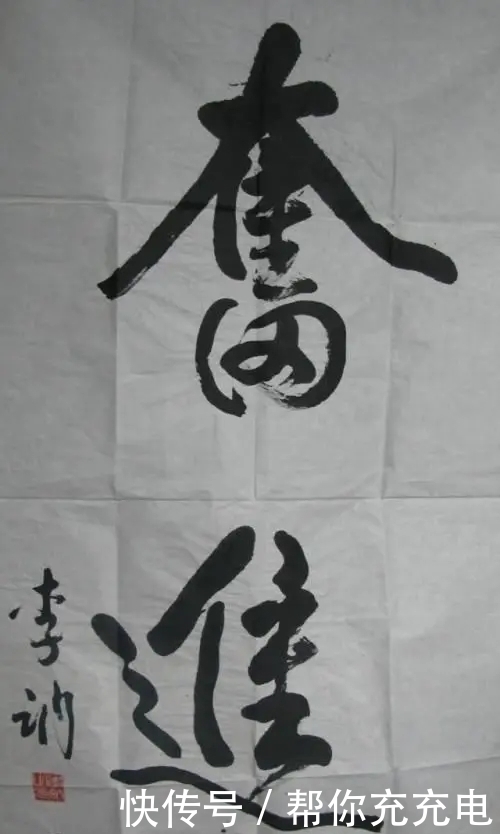 奮
進
李訥
快传号/帮你充充电